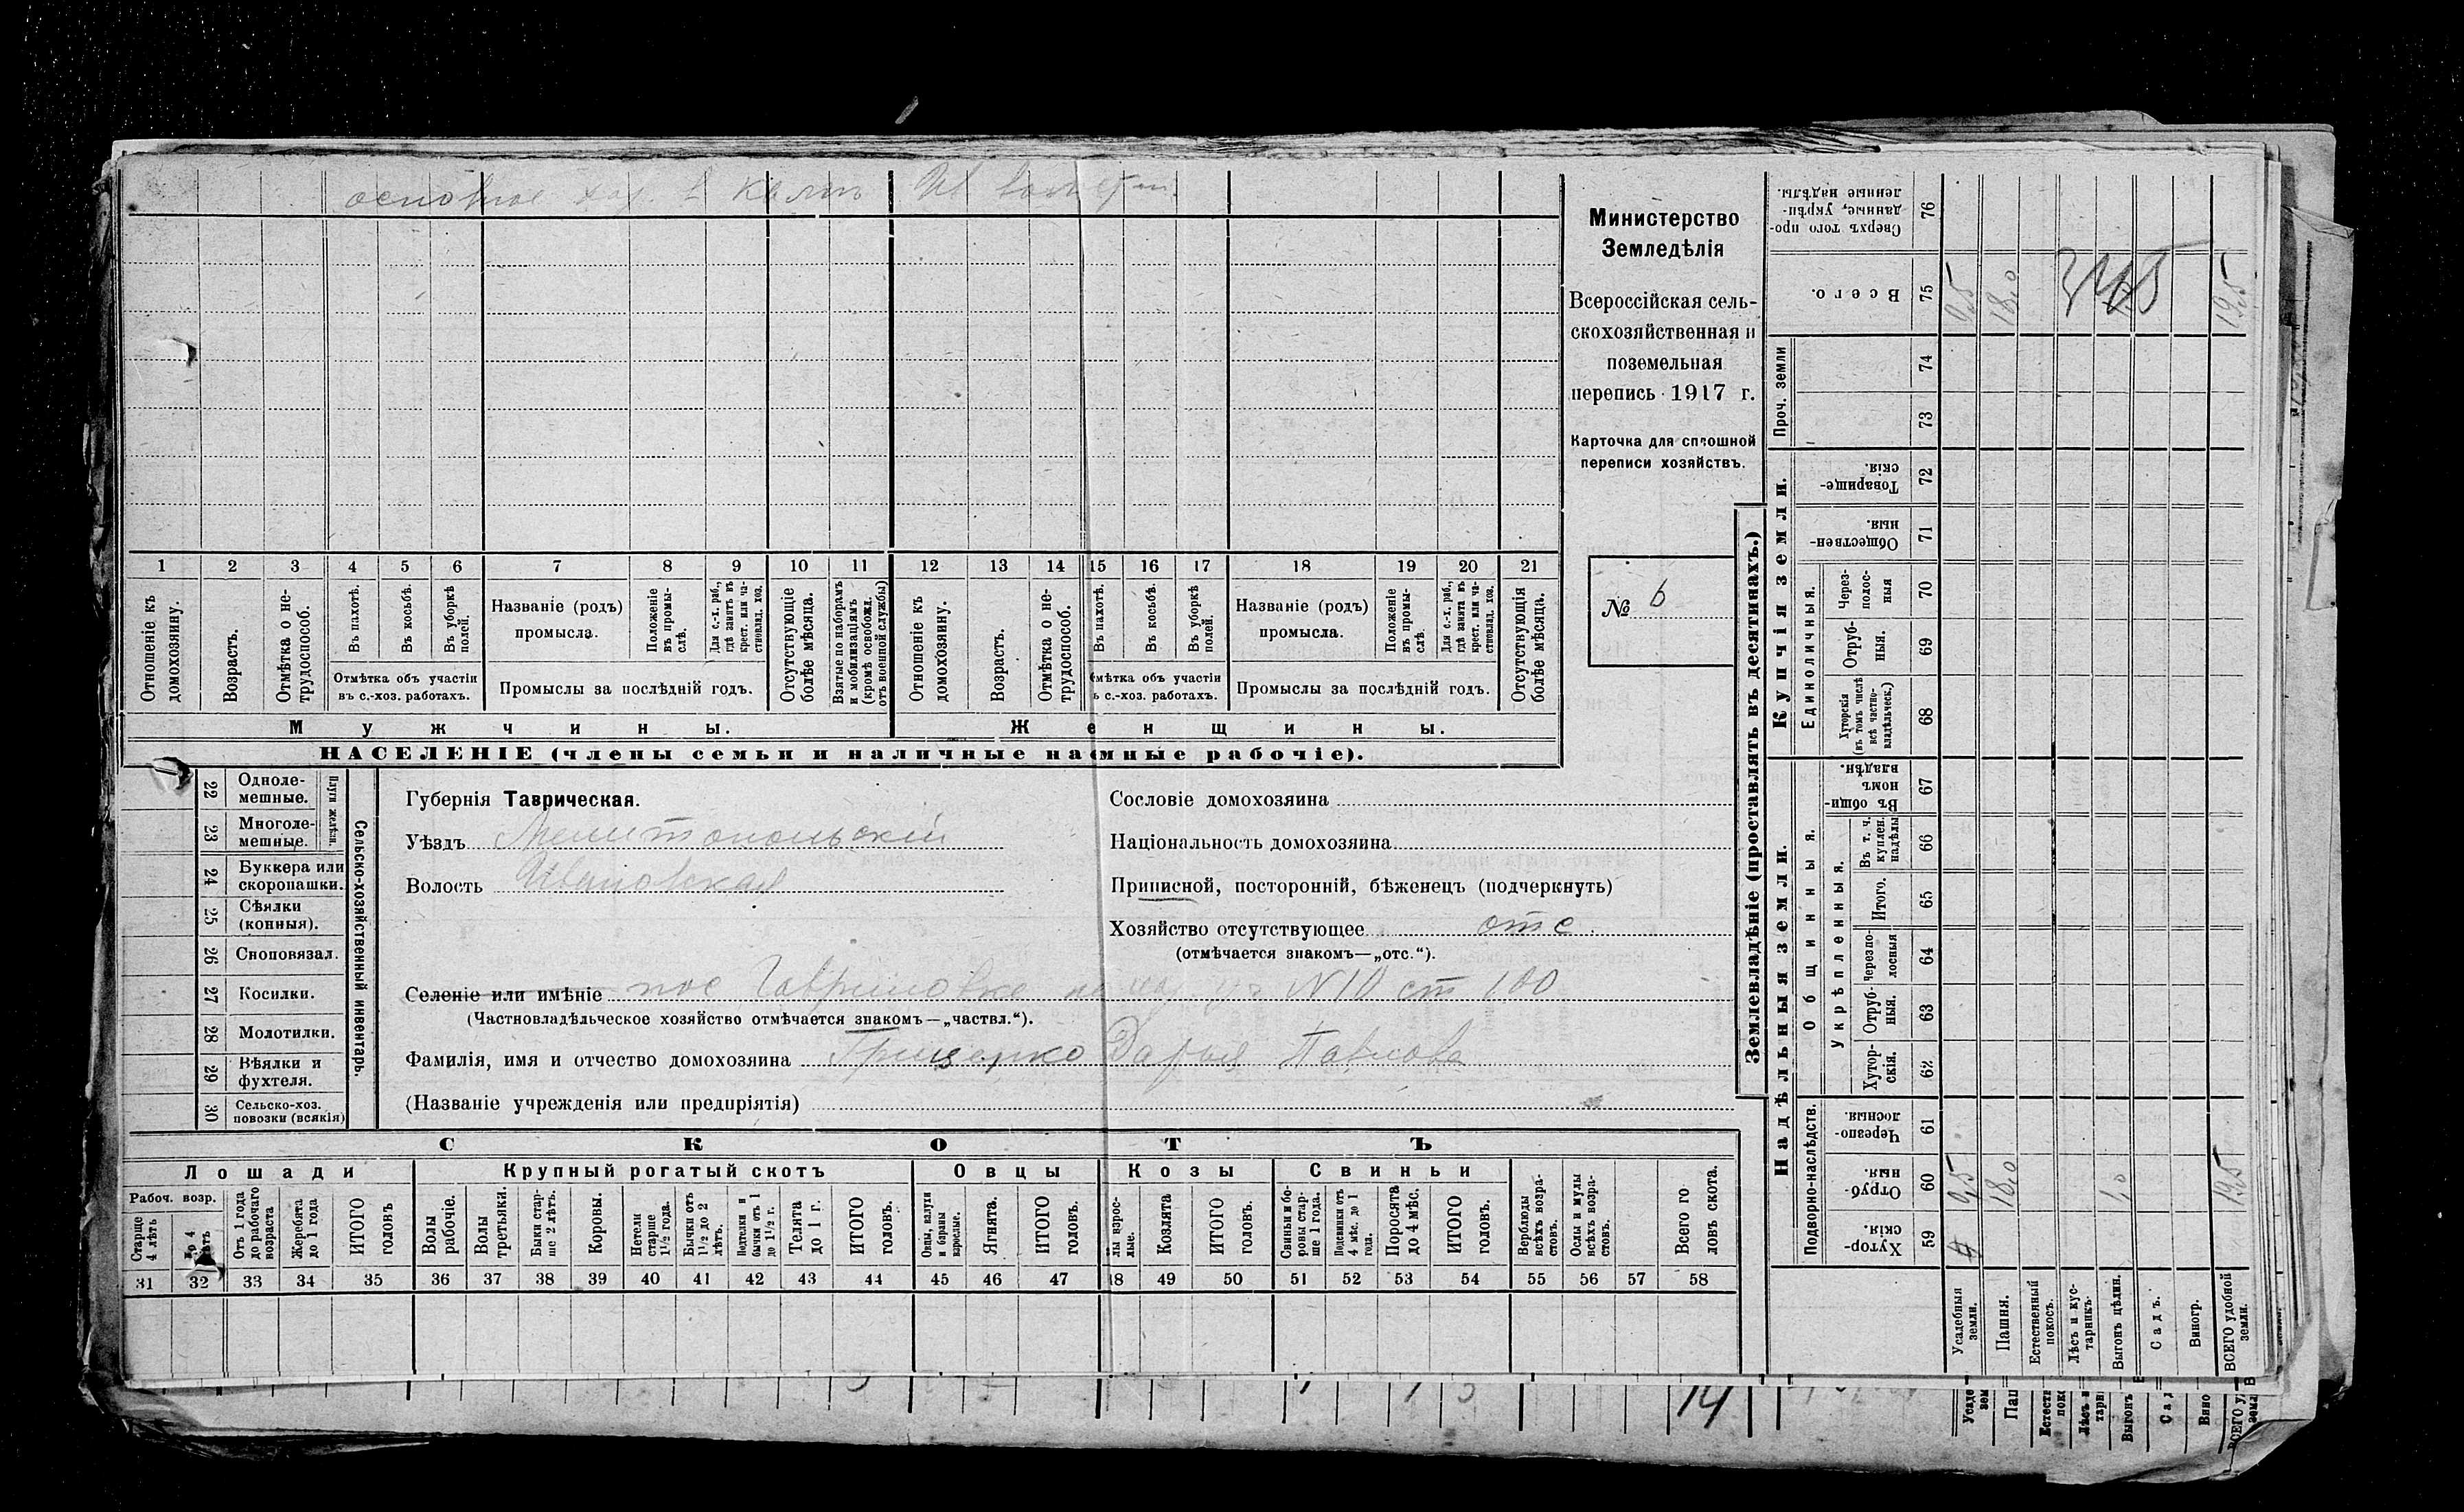 основное хоз. в
Министерство
Земледѣлія
Всероссійская сель-
скохозяйственная и
поземельная
перепись 1917 г.
Карточка для сплошной
переписи хозяйствъ.
№ 6
1 2 3 4 5 6 7 8 9 10 11 12 13 14 15 16 17 18 19 20 21
Отношеніе къ домохозяину.
Возрастъ.
Отмѣтка о не-трудоспособ.
Въ пахотѣ.
Въ косьбѣ.
Въ уборкѣ полей.
Отмѣтка объ участіи
въ с.-хоз. работахъ.
Названіе (родъ)
промысла.
Положеніе въ промы-слѣ.
Для с.-х. раб., гдѣ занятъ въ крест. или ча-стновлад. хоз.
Промыслы за послѣдній годъ.
Отсутствующіе болѣе мѣсяца.
Взятые по наборамъ и мобилизаціямъ (кромѣ освобожд. отъ военной службы)
Отношеніе къ домохозяину.
Возрастъ.
Отмѣтка о не-трудоспособ.
Въ пахотѣ.
Въ косьбѣ.
Въ уборкѣ полей.
мѣтка объ участіи
ъ с.-хоз. работахъ.
Названіе (родъ)
промысла.
Положеніе въ промы-слѣ.
Для с.-х. раб., гдѣ занята въ крест. или ча-стновлад. хоз.
Промыслы за послѣдній годъ.
Отсутствующія болѣе мѣсяца.
Мужчины.
Женщины.
НАСЕЛЕНІЕ (члены семьи и наличные наемные рабочіе).
22 Однолемешные.
23 Многолемешные.
Плуги желѣзн.
24 Буккера или скоропашки.
25 Сѣялки (конныя).
26 Сноповязал.
27 Косилки.
28 Молотилки.
29 Вѣялки и фухтеля.
30 Сельско-хоз. повозки (всякія)
Сельско-хозяйственный инвентарь.
Губернія Таврическая.
Уѣздъ Мелитопольскій
Волость Ивановская
Сословіе домохозяина
Національность домохозяина
Приписной, посторонній, бѣженецъ (подчеркнуть)
Хозяйство отсутствующее отс.
(отмѣчается знакомъ—„отс.“).
Селеніе или имѣніе пос Гавриловка № 10 ст 100
(Частновладѣльческое хозяйство отмѣчается знакомъ—„частвл.“).
Фамилія, имя и отчество домохозяина Грищенко Дарья Павлова
(Названіе учрежденія или предпріятія)
СКОТЪ
Лошади
Крупный рогатый скотъ
Овцы
Козы
Свиньи
Рабоч. возр.
Старше 4 лѣтъ
до 4 лѣтъ
Отъ 1 года до рабочаго возраста
Жеребята до 1 года
ИТОГО головъ
Волы рабочіе.
Волы третьяки.
Быки стар-ше 2 лѣтъ.
Коровы.
Нетели старше 1½ года.
Бычки отъ 1½ до 2 лѣтъ.
Нетелки и бычки отъ 1 до 1½ г.
Телята до 1 г.
ИТОГО головъ.
Овцы, валухи и бараны взрослые.
Ягнята.
ИТОГО головъ.
лы взрос-лые.
Козлята
ИТОГО головъ.
Свиньи и бо-ровы стар-ше 1 года.
Подсвинки отъ 4 мѣс. до 1 года.
Поросята до 4 мѣс.
ИТОГО головъ.
Верблюды всѣхъ возра-стовъ.
Ослы и мулы всѣхъ возра-стовъ.
Всего го ловъ скота.
31 32 33 34 35 36 37 38 39 40 41 42 43 44 45 46 47 48 49 50 51 52 53 54 55 56 57 58
14
Землевладѣніе (проставлять въ десятинахъ.)
Надѣльныя земли.
Купчія земли.
Проч. земли
Подворно-наслѣдств.
Общинныя.
Укрѣпленныя.
Единоличныя.
76 Сверхъ того про-данные, укрѣп-ленные надѣлы.
75 Всего.
74
73
72 Товарище-скія.
71 Обществен-ныя.
70 Через-полос-ныя
69 Отруб-ныя.
68 Хуторскія (въ томъ числѣ всѣ частно-владѣльческ.)
67 Въ общин-номъ владѣн.
66 Въ т. ч. куплен. надѣлы
65 Итого.
64 Черезпо-лосныя
63 Отруб-ныя.
62 Хутор-скія.
61 Черезпо-лосныя.
60 Отруб-ныя.
59 Хутор-скія.
Усадебныя земли. 0,5 0,5
Пашня. 18,0 18,0
Естественный покосъ.
Лѣсъ и кус-тарникъ.
Выгонъ цѣлин. 1,0
Садъ.
Виногр.
ВСЕГО удобной земли. 19,5 19,5